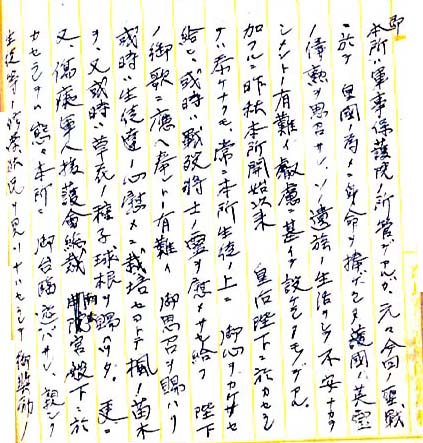 即
本所ハ軍事保護院ノ所管デアルガ、元々今回ノ聖戦
ニ於テ 皇国ノ為メニ身命ヲ捧ゲラレタ護国ノ英霊
ノ偉勲ヲ思召サレ、ソノ遺族ノ生活ヲシテ不安ナカラ
シメントノ有難イ叡慮ニ基イテ設ケラレタモノデアル。
加フルニ昨秋本所開始以来 皇后陛下ニ於カセラレ
テハ恭ケナクモ、常ニ本所生徒ノ上ニ 御心ヲカケサセ
給ヒ、或時ハ戦歿将士ノ霊ヲ慰メサセ給フ 陛下
ノ御歌ニ應ヘ奉レトノ有難イ 御思召ヲ賜ハリ
或時ハ生徒達ノ心慰メニ栽培セヨトテ楓ノ苗木
ヲ、又或時ハ草花ノ種子、球根ヲ賜ハッタ。更ニ
又、傷痍軍人援護會総裁 宮殿下ニ於
カセラレテハ態々本所ニ 御台臨遊バサレ、親シク
生徒等ノ作業状況ヲ見ソナハセラレテ御奨励ノ